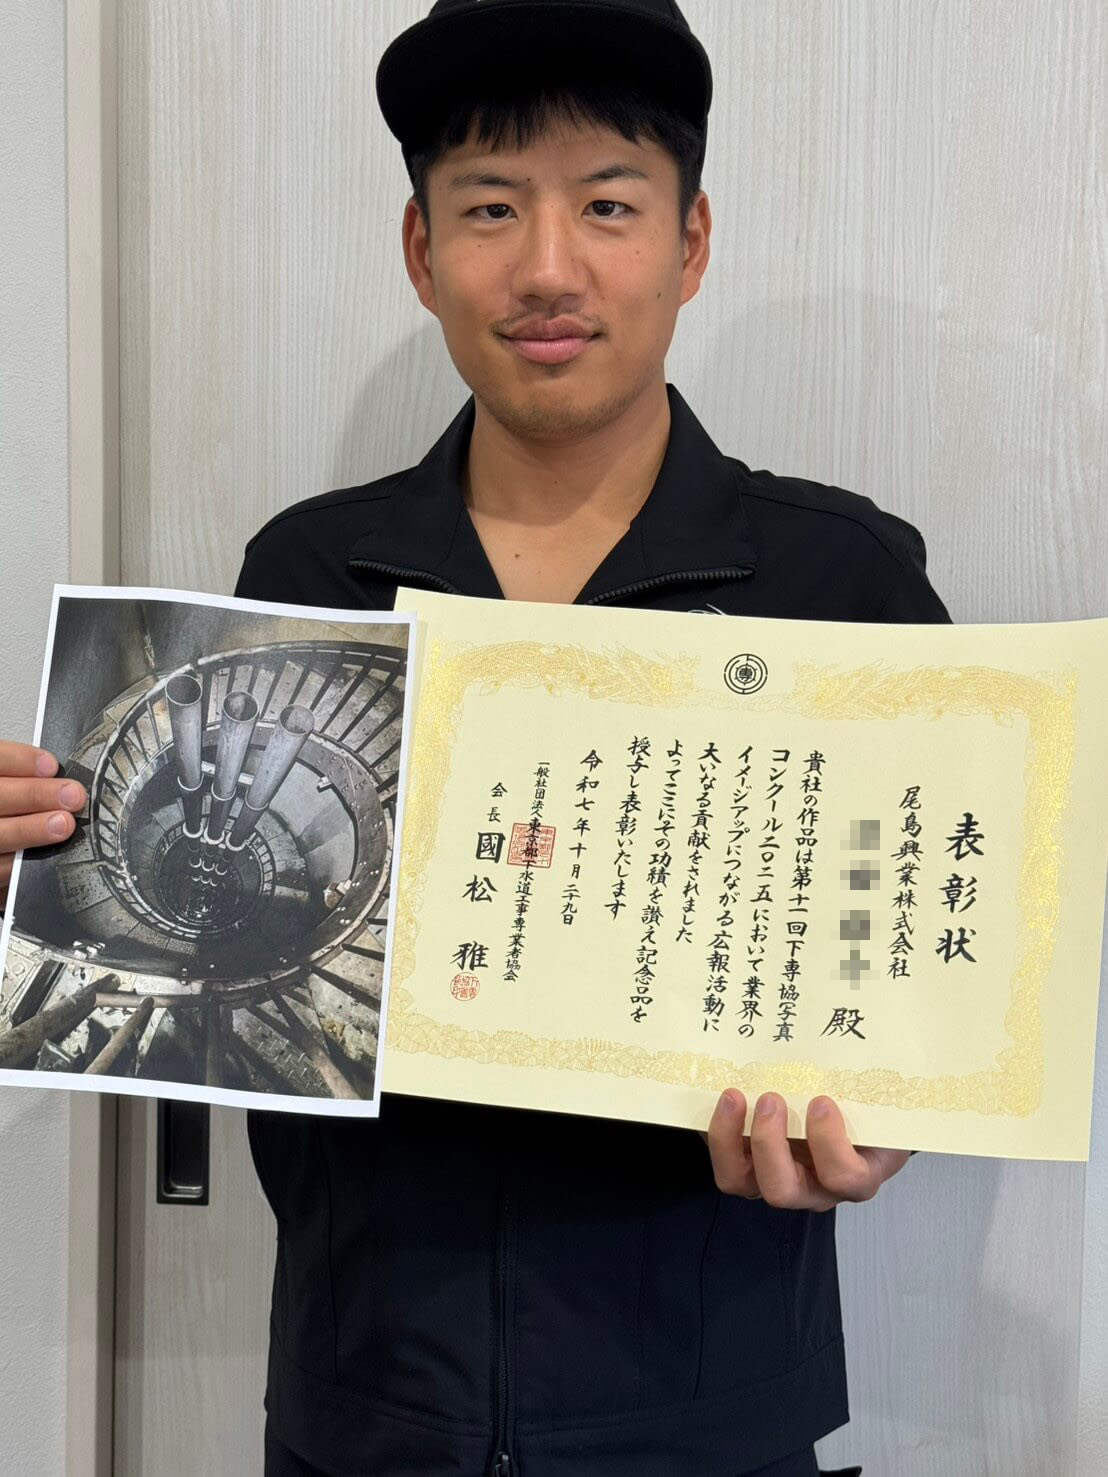 表彰状
尾島興業株式会社
殿
貴社の作品は第十一回下専協写真
コンクール二〇二五において業界の
イメージアップにつながる広報活動に
大いなる貢献をされました
よってここにその功績を讃え記念品を
授与し表彰いたします
令和七年十月二十九日
一般社団法人東京都下水道工事専業者協会
会長 國松 雅